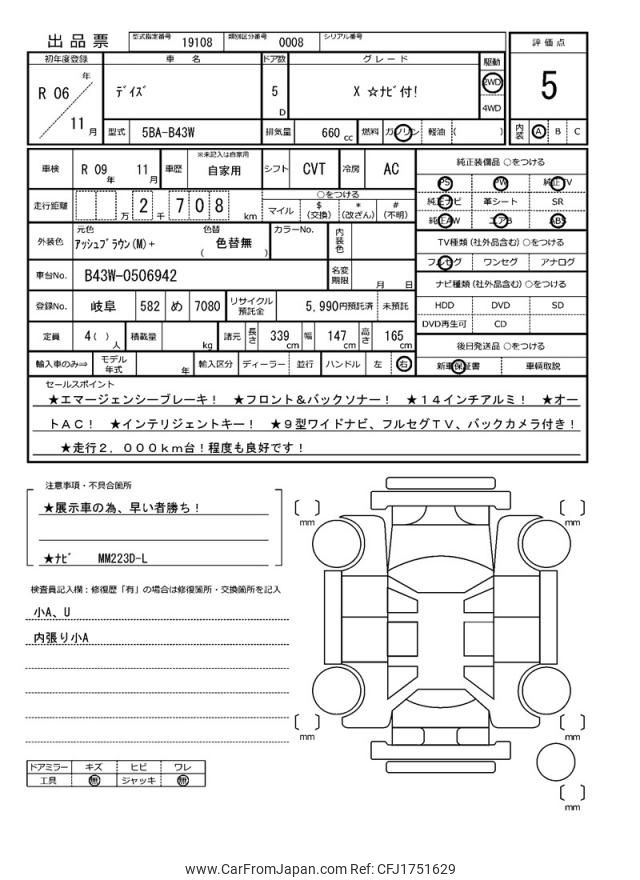 出品票 型式指定番号 19108 類別区分番号 0008 シリアル番号
初年度登録 車名 ドア数 グレード 駆動 評価点
R 06 年 11 月 ﾃﾞｲｽﾞ 5 D X ☆ﾅﾋﾞ付! 2WD 4WD 5
型式 5BA-B43W 排気量 660 cc 燃料 ガソリン 軽油 ( ) 内装 A B C
車検 R 09 年 11 月 車歴 ※未記入は自家用 自家用 シフト CVT 冷房 AC
走行距離 万 2 千 7 0 8 km ○をつける
マイル $ (交換) * (改ざん) # (不明)
外装色 元色 ｱｯｼｭﾌﾞﾗｳﾝ(M)+ 色替 ( 色替無 ) カラーNo. 内装色
車台No. B43W-0506942 名変期限 月 日
登録No. 岐阜 582 め 7080 リサイクル預託金 5,990円預託済 未預託
定員 4 ( ) 人 積載量 kg 諸元 長さ 339 cm 幅 147 cm 高さ 165 cm
輸入車のみ⇒ モデル年式 年 輸入区分 ディーラー 並行 ハンドル 左 右
純正装備品 ○をつける
PS PW 純正TV
純正ナビ 革シート SR
純正AW エアB ABS
TV種類 (社外品含む) ○をつける
フルセグ ワンセグ アナログ
ナビ種類 (社外品含む) ○をつける
HDD DVD SD
DVD再生可 CD
後日発送品 ○をつける
新車保証書 車輌取説
セールスポイント
★エマージェンシーブレーキ! ★フロント&バックソナー! ★14インチアルミ! ★オー
トAC! ★インテリジェントキー! ★9型ワイドナビ、フルセグTV、バックカメラ付き!
★走行2,000km台!程度も良好です!
注意事項・不具合箇所
★展示車の為、早い者勝ち!
★ﾅﾋﾞ MM223D-L
検査員記入欄:修復歴「有」の場合は修復箇所・交換箇所を記入
小A、U
内張り小A
ドアミラー キズ ヒビ ワレ
工具 無 ジャッキ 無
mm mm
mm mm
mm
www.CarFromJapan.com Ref: CFJ1751629